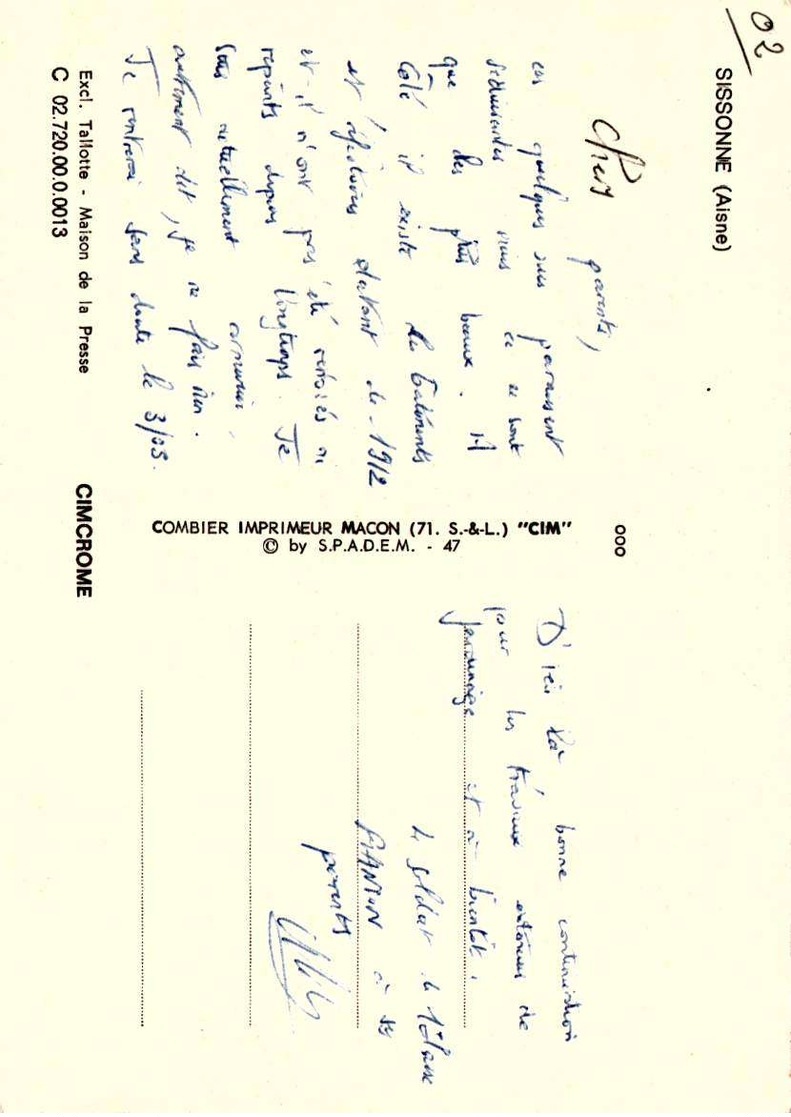 02
SISSONNE (Aisne)
Chers parents,
ces quelques vues paraissent
séduisantes mais ce ne sont
que des plus beaux. A
côté il existe des bâtiments
et réfectoires datant de 1912
et, il n'ont pas été rénovés ni
repeints depuis longtemps. Je
suis actuellement armurier,
autrement dit, je ne fais rien.
Je rentrerai sans doute le 3/03.
Excl. Tallotte - Maison de la Presse
C 02.720.00.0.0013
CIMCROME
COMBIER IMPRIMEUR MACON (71. S.-&-L.) "CIM"
© by S.P.A.D.E.M. - 47
000
D'ici là bonne continuation
pour les travaux extérieurs de
jardinage et à bientôt.
le soldat de 1ère classe
à ses
parents